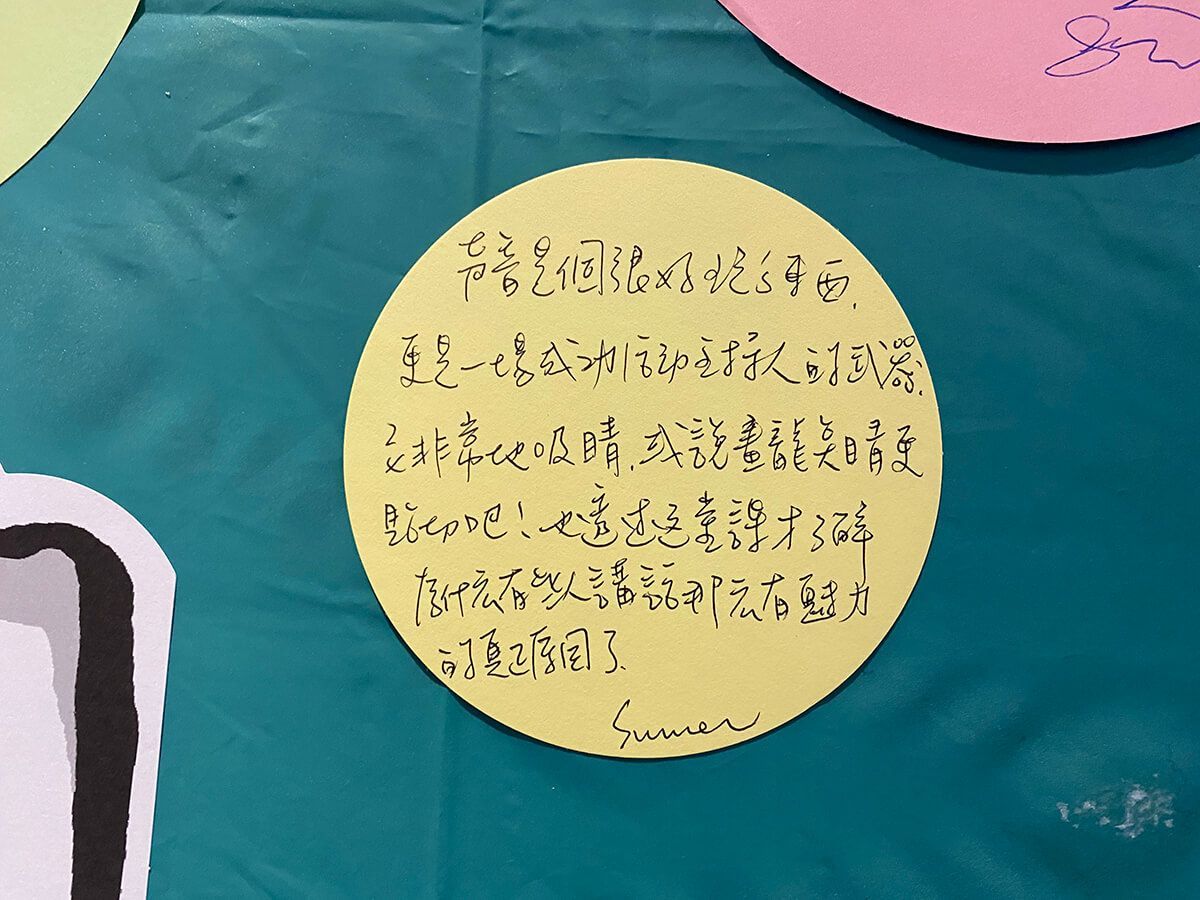 声音是個很好玩的東西,
更是一場成功活動主持人的武器,
又非常地吸睛,或說畫龍點睛更
貼切吧!也透过这堂課才了解
為什么有些人講話那么有魅力
的真正原因了.
Summer